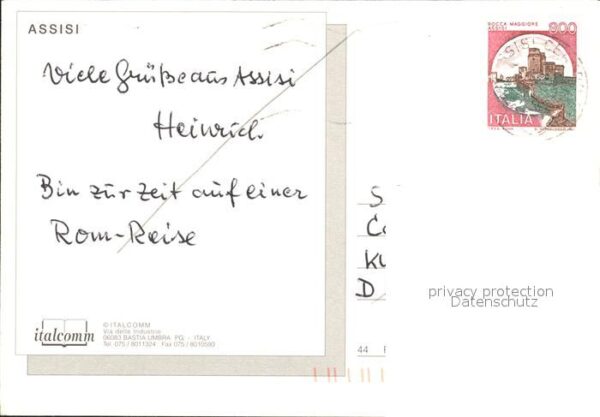 ASSISI
Viele Grüße aus Assisi
Heinrich.
Bin zur Zeit auf einer
Rom-Reise
italcomm
© ITALCOMM
Via delle Industrie
06083 BASTIA UMBRA PG. · ITALY
Tel. 075 / 8011324 Fax 075 / 8010590
ROCCA MAGGIORE
ASSISI
900
ITALIA
S
Co
KU
D
privacy protection
Datenschutz
44